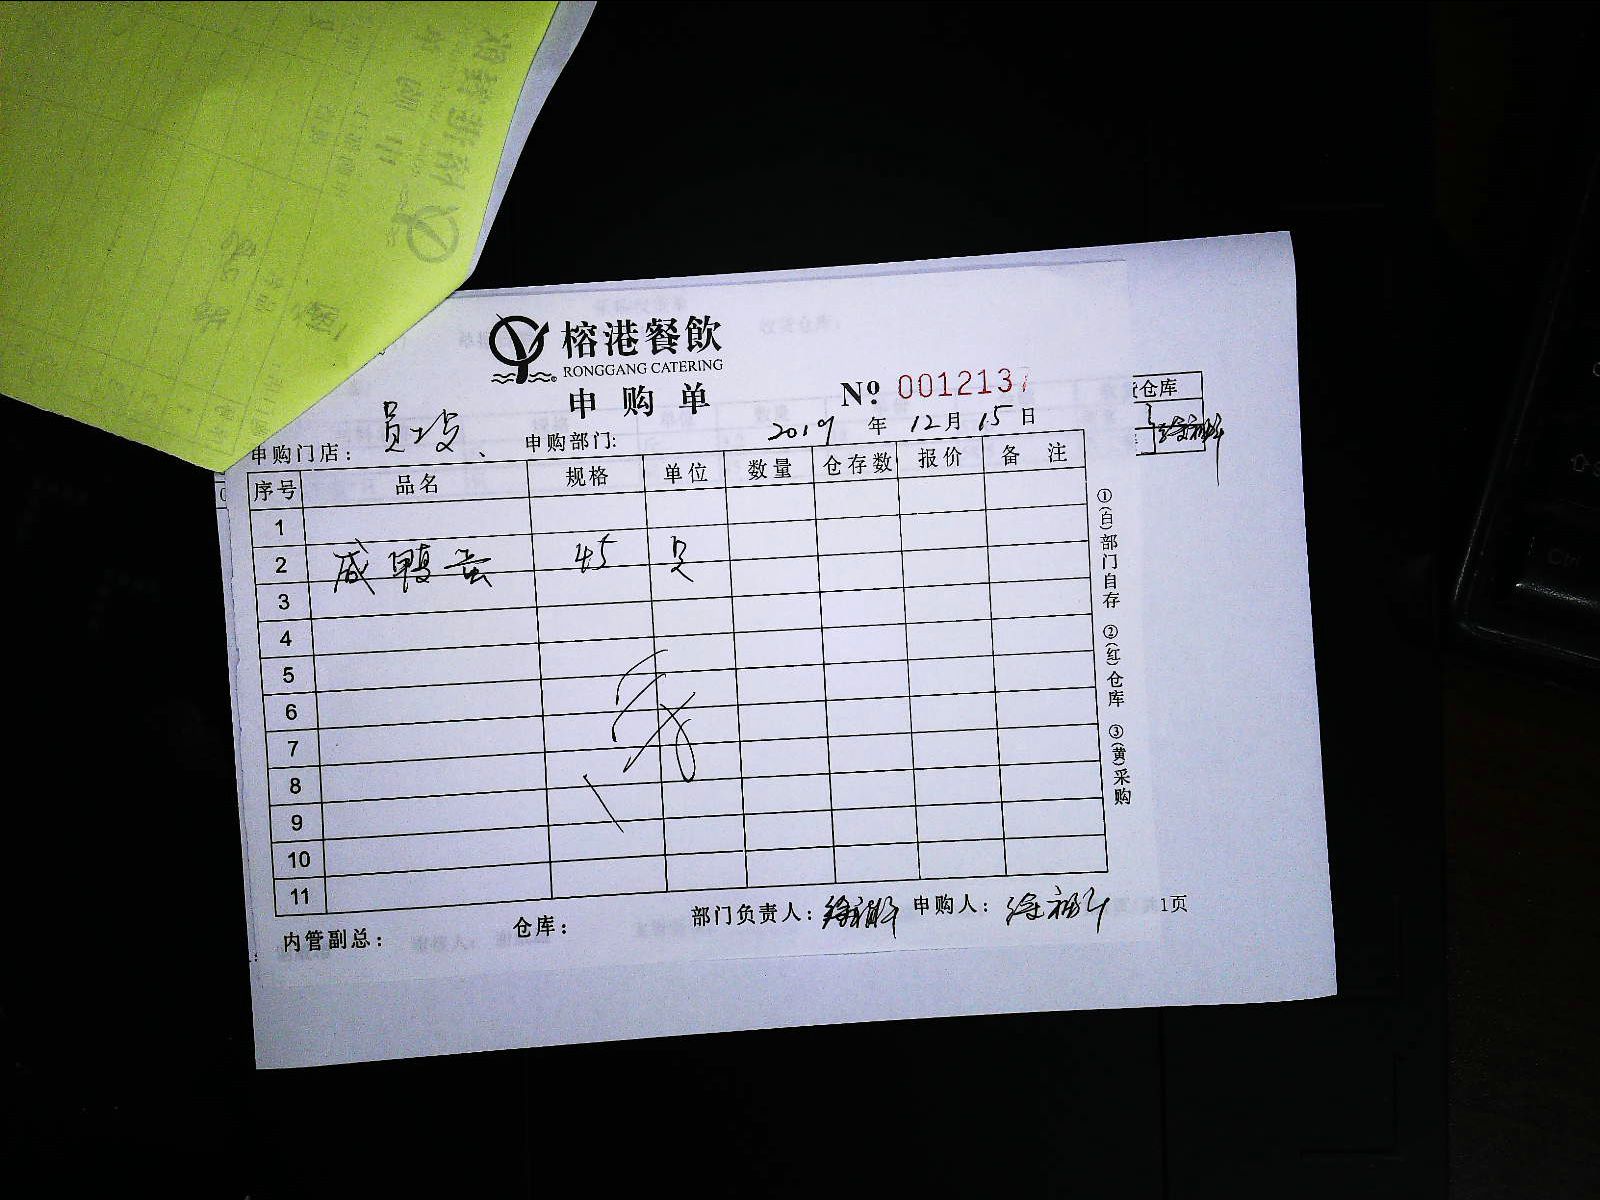 榕港餐飲
RONGGANG CATERING
申购单
№ 0012137
2019年12月15日
申购门店：员工 申购部门：
序号 品名 规格 单位 数量 仓存数 报价 备注
1
2 咸鸭蛋 45 只
3
4
5
6
7
8
9
10
11
内管副总： 仓库： 部门负责人： 申购人：
①(白)部门自存 ②(红)仓库 ③(黄)采购
仓库
1页